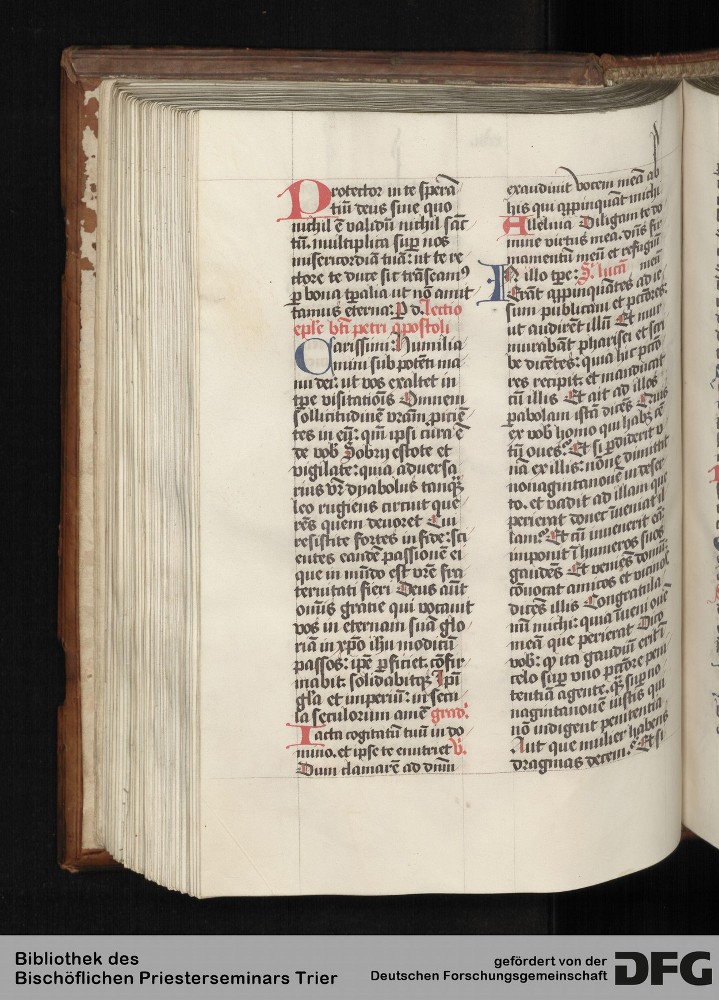 Protector in te sperā
tiū deus sine quo
nichil ē validū nichil sāc
tū. multiplica sup nos
misericordiā tuā: ut te re
ctore te duce sic trāseamꝰ
ꝑ bona tꝑalia ut nō amit
tamus eterna: P d. lectio
eple bti petri apostoli
Carissimi: Humilia
mini sub potēti ma
nu dei: ut vos exaltet in
tpe visitatiōis Omnem
sollicitudinē vrām ꝓiciē
tes in eū: qm̄ ipsi cura ē
de vob Sobrij estote et
vigilate: quia adversa
rius vr̄ dyabolus tanqȝ
leo rugiens circuit que
rēs quem devoret Cui
resistite fortes in fide: sci
entes eandē passionē ei
que in mūdo est vrē fra
ternitati fieri Deus aūt
omīs gratie qui vocavit
vos in eternam suā glo
riā in xp̄o ihū modicū
passos: ipē ꝑficiet. cōfir
mabit. solidabitqȝ Ipī
gl̄a et imperiū: in secu
la seculorum amē grad.
Iacta cogitatū tuū in do
mino. et ipse te enutriet V.
Dum clamarē ad dnm̄
exaudivit vocem meā ab
hiis qui appinquāt michi
Alleluia Diligam te do
mine virtus mea. dn̄s fir
mamentū meū et refugiū
meū
In illo tpe: S. lucā
Erāt appinquātes ad ie
sum publicani et pctōres:
ut audirēt illū Et mur
murabāt pharisei et scri
be dicētes: quia hic pctō
res recipit: et manducat
cū illis Et ait ad illos
ꝑabolam istā dicēs Quis
ex vob homo qui habȝ cē
tū oves: Et si ꝑdiderit v
nā ex illis: nōne dimittit
nonagintanovē in deser
to. et vadit ad illam que
perierat donec īveniat il
lam: Et cū invenerit eā:
imponit ī humeros suos
gaudēs Et veniēs domū:
cōvocat amicos et vicinos
dicēs illis Congratula
mī michi: quia īveni ovē
meā que perierat Dico
vob: qꝫ ita gaudiū erit ī
celo sup uno pctōre peni
tentiā agente. qȝ sup no
nagintanovē iustis qui
nō indigent penitentia
Aut que mulier habens
dragmas decem: Et si
Bibliothek des
Bischöflichen Priesterseminars Trier
gefördert von der
Deutschen Forschungsgemeinschaft
DFG